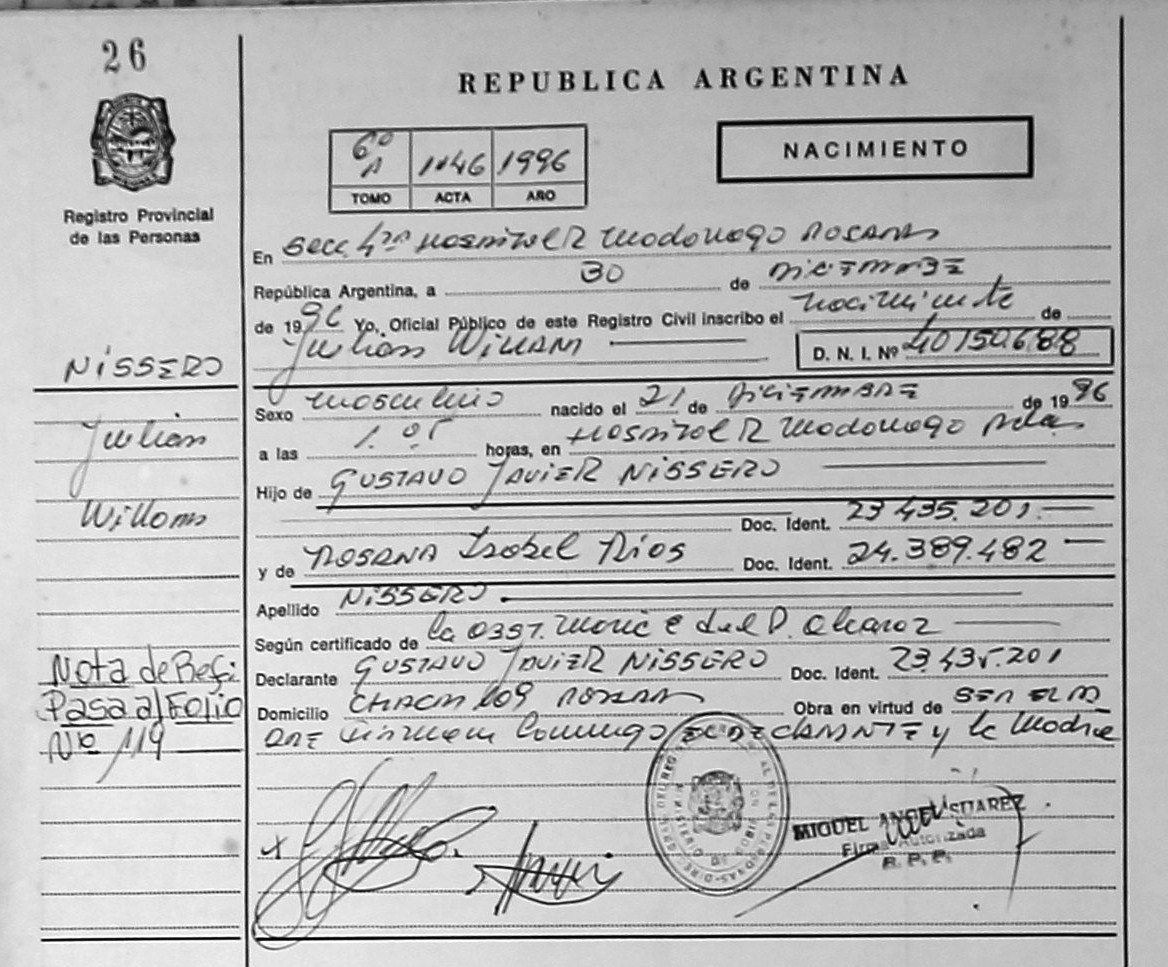 26
REPUBLICA ARGENTINA
6º A 1146 1996
TOMO ACTA AÑO
NACIMIENTO
Registro Provincial
de las Personas
En Secc 4ta Hospital R Madariaga Posadas
República Argentina, a 30 de Diciembre
de 1996 Yo, Oficial Público de este Registro Civil inscribo el nacimiento de
Julian William D. N. I. Nº 40150688
NISSERO
Sexo masculino nacido el 21 de Diciembre de 1996
Julian
a las 1. 05 horas, en Hospital R Madariaga Pdas
Hijo de GUSTAVO JAVIER NISSERO
William
Doc. Ident. 23 435.201.
y de ROSANA Isabel Ríos Doc. Ident. 24.389.482
Apellido NISSERO
Según certificado de la Obst.
Nota de Ref;
Declarante GUSTAVO JAVIER NISSERO Doc. Ident. 23.435.201
Pasa a/Folio
Domicilio Obra en virtud de ser el pa
Nº 119
dre firman conmigo el declarante y la madre
MIGUEL ANGEL SUAREZ
Firma Autorizada
R. P. P.